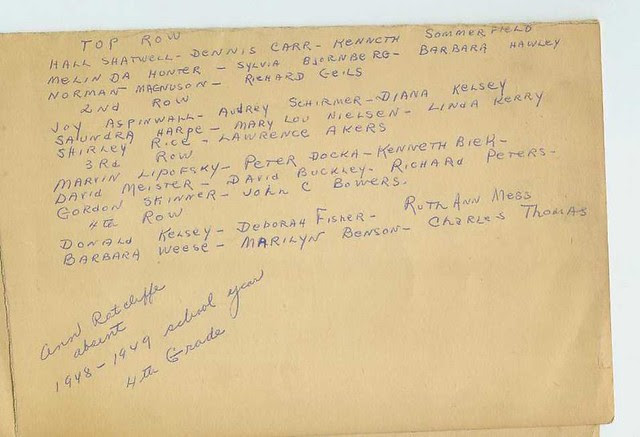 TOP ROW
HALL SHATWELL - DENNIS CARR - KENNETH SOMMERFIELD
MELINDA HONTER - SYLVIA BJORNBERG - BARBARA HAWLEY
NORMAN MAGNUSON - RICHARD GEILS
2ND ROW
JOY ASPINWALL - AUDREY SCHIRMER - DIANA KELSEY
SAUNDRA HARPE - MARY LOU NIELSEN - LINDA KERRY
SHIRLEY RICE - LAWRENCE AKERS
3RD ROW
MARVIN LIPOFSKY - PETER DOCKA - KENNETH BIEK -
DAVID MEISTER - DAVID BUCKLEY - RICHARD PETERS -
GORDON SKINNER - JOHN C BOWERS.
4TH ROW
DONALD KELSEY - DEBORAH FISHER - RUTH ANN MESS
BARBARA WEESE - MARILYN BENSON - CHARLES THOMAS
Ann Ratcliffe
absent
1948-1949 school year
4th Grade